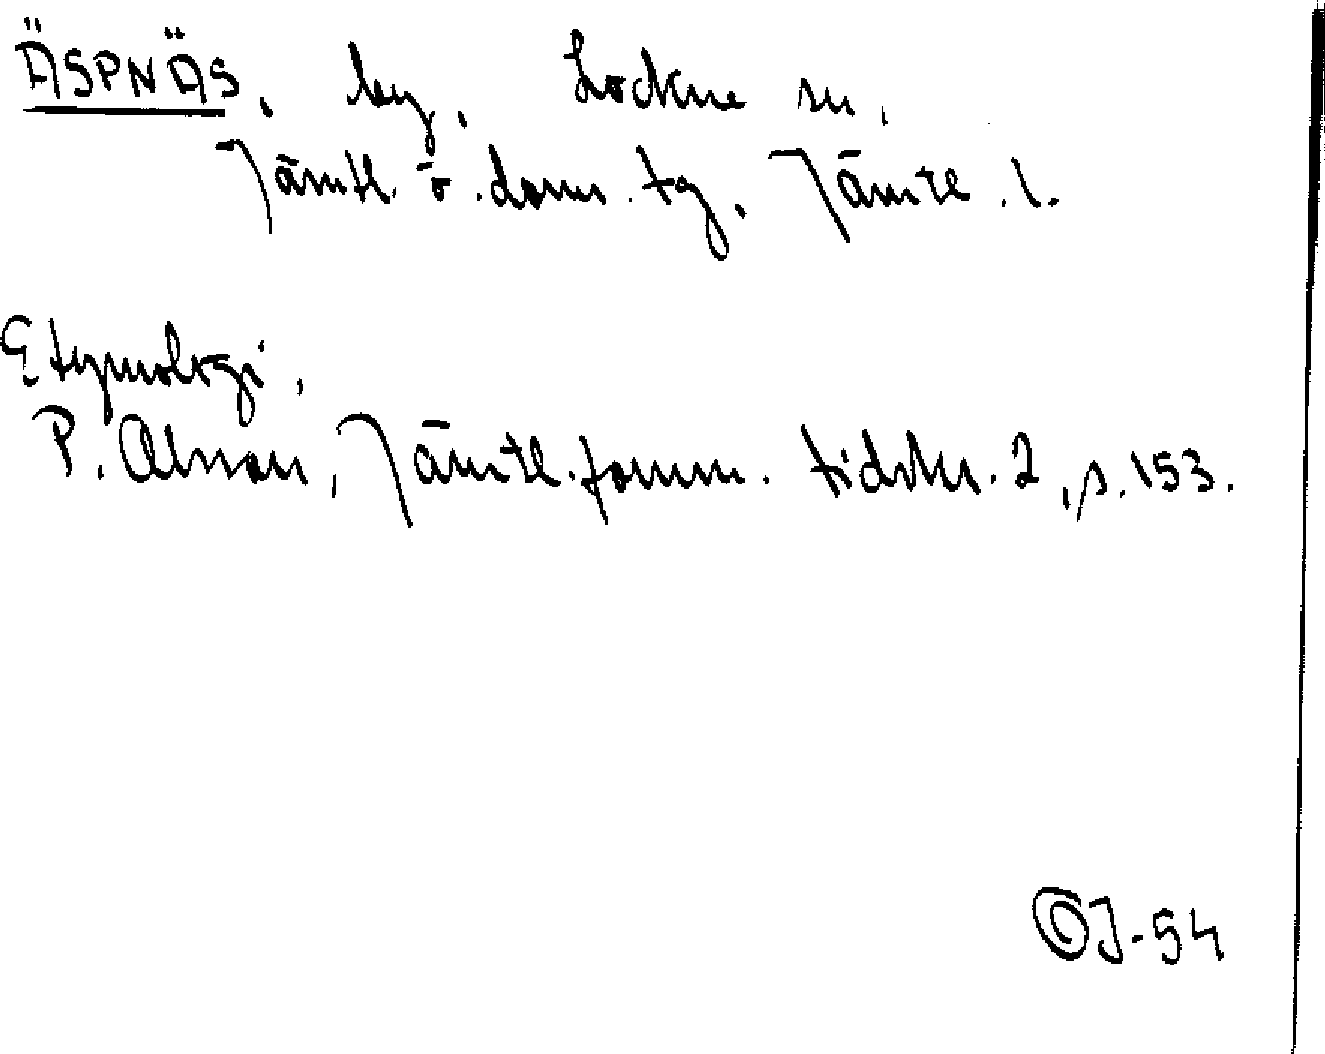 ÄSPNÄS, by, Lockne sn,
Jämtl. ö. doms. tg, Jämtl. l.
Etymologi,
P. Olsson, Jämtl. fornm. tidskr. 2, s. 153.
OJ-54